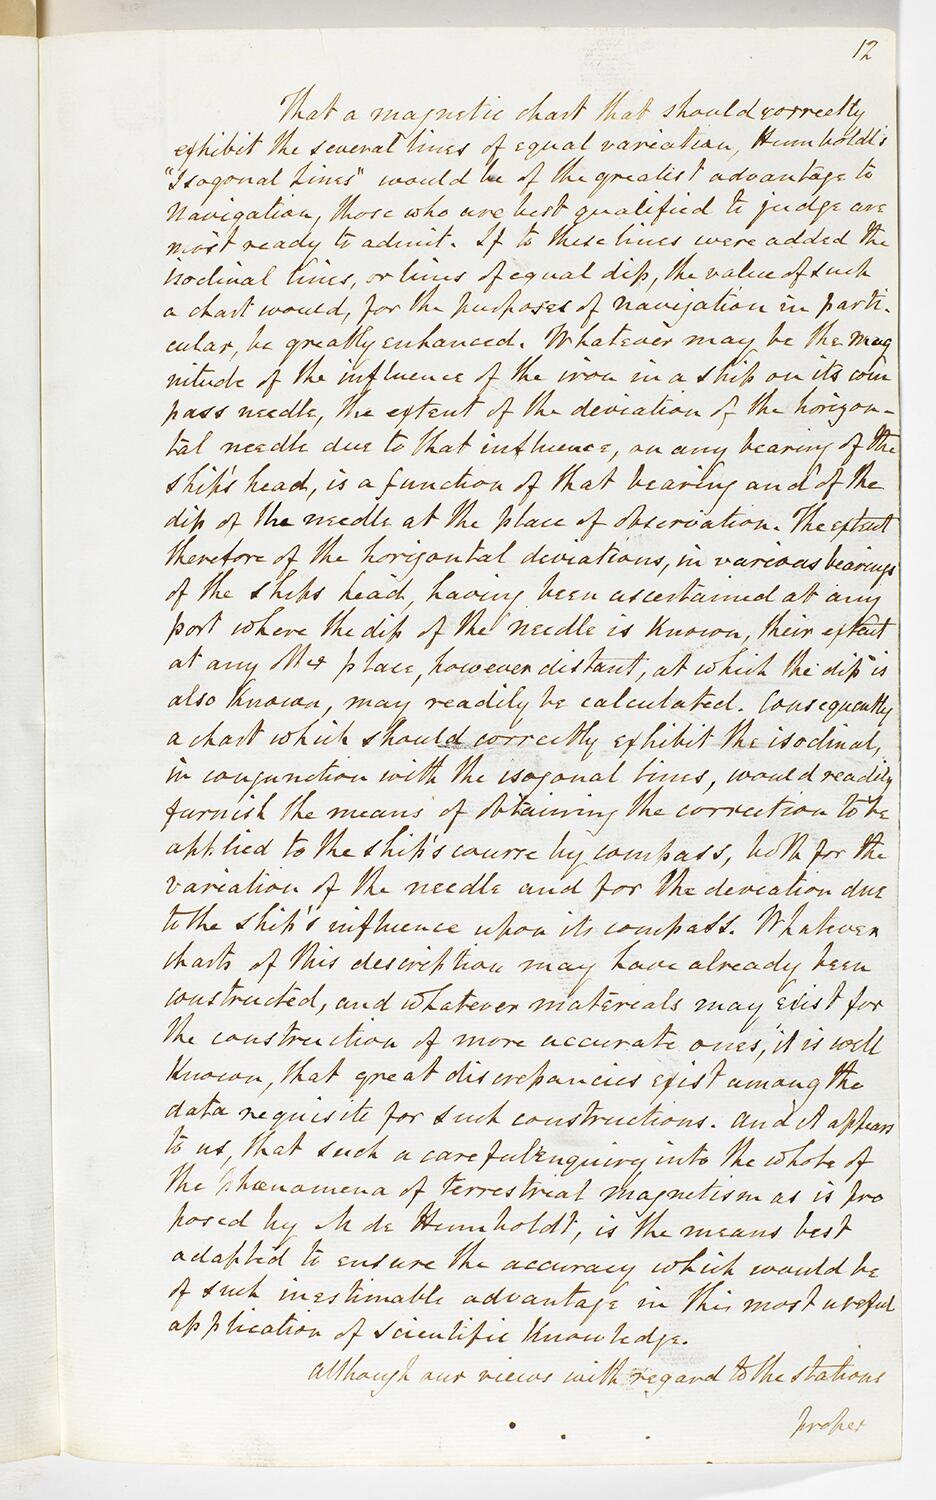 12
That a magnetic chart that should correctly
exhibit the several lines of equal variation, Humboldt's
"Isogonal Lines" would be of the greatest advantage to
Navigation, those who are best qualified to judge are
most ready to admit. If to these lines were added the
isoclinal lines, or lines of equal dip, the value of such
a chart would, for the purposes of navigation in parti-
cular, be greatly enhanced. Whatever may be the mag
nitude of the influence of the iron in a ship on its com
pass needle, the extent of the deviation of the horizon-
tal needle due to that influence, on any bearing of the
ship's head, is a function of that bearing and of the
dip of the needle at the place of observation. The extent
therefore of the horizontal deviations, in various bearings
of the ships head, having been ascertained at any
port where the dip of the needle is known, their extent
at any other place, however distant, at which the dip is
also known, may readily be calculated. Consequently
a chart which should correctly exhibit the isoclinal,
in conjunction with the isogonal lines, would readily
furnish the means of obtaining the correction to be
applied to the ship's course by compass, both for the
variation of the needle and for the deviation due
to the ship's influence upon its compass. Whatever
charts of this description may have already been
constructed, and whatever materials may exist for
the construction of more accurate ones, it is well
known, that great discrepancies exist among the
data requisite for such constructions. And it appears
to us, that such a careful enquiry into the whole of
the phœnomena of terrestrial magnetism as is pro
posed by M de Humboldt, is the means best
adapted to ensure the accuracy which would be
of such inestimable advantage in this most useful
application of scientific knowledge.
Although our views with regard to the stations
proper